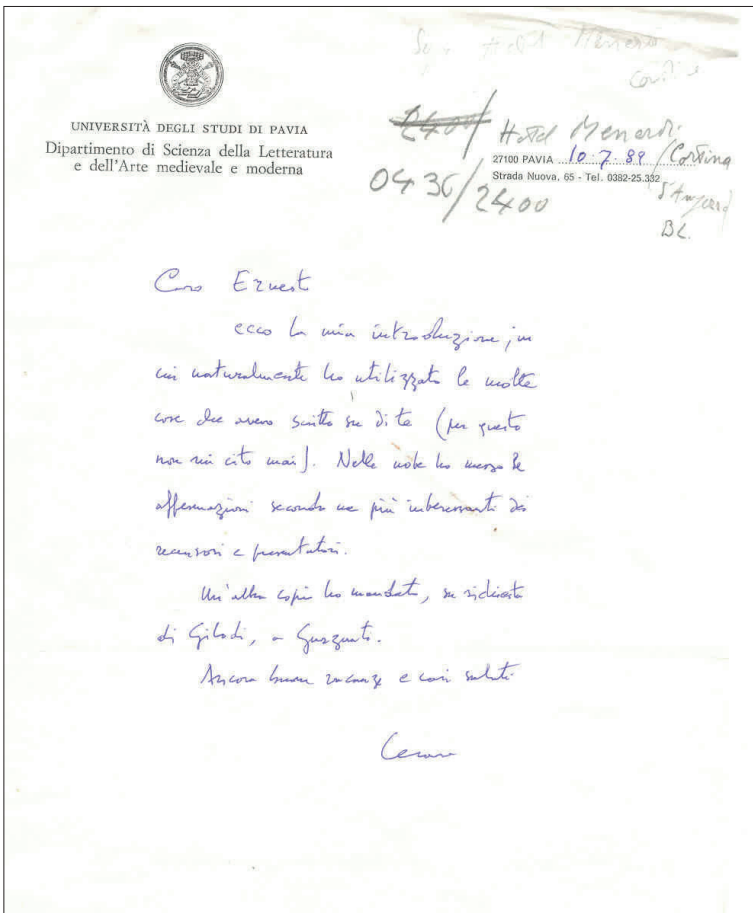 Hotel Menardi
UNIVERSITÀ DEGLI STUDI DI PAVIA
Dipartimento di Scienza della Letteratura
e dell'Arte medievale e moderna
2400/
Hotel Menardi
27100 PAVIA 10.7.89 / Cortina
Strada Nuova, 65 - Tel. 0382-25.332
d'Ampezzo
0436/2400
BL.
Caro Ernest
ecco la mia introduzione, in
cui naturalmente ho utilizzato le molte
cose che avevo scritto su di te (per questo
non mi cito mai). Nelle note ho messo le
affermazioni secondo me più interessanti dei
recensori e presentatori.
Un'altra copia ho mandato, su richiesta
di Gilodi, a Guagnato.
Ancora buone vacanze e cari saluti
Cesare